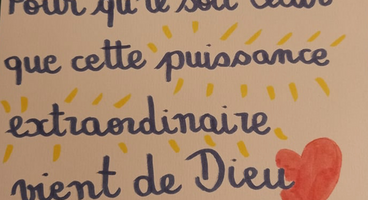 Pour qu'il soit clair
que cette puissance
extraordinaire
vient de Dieu